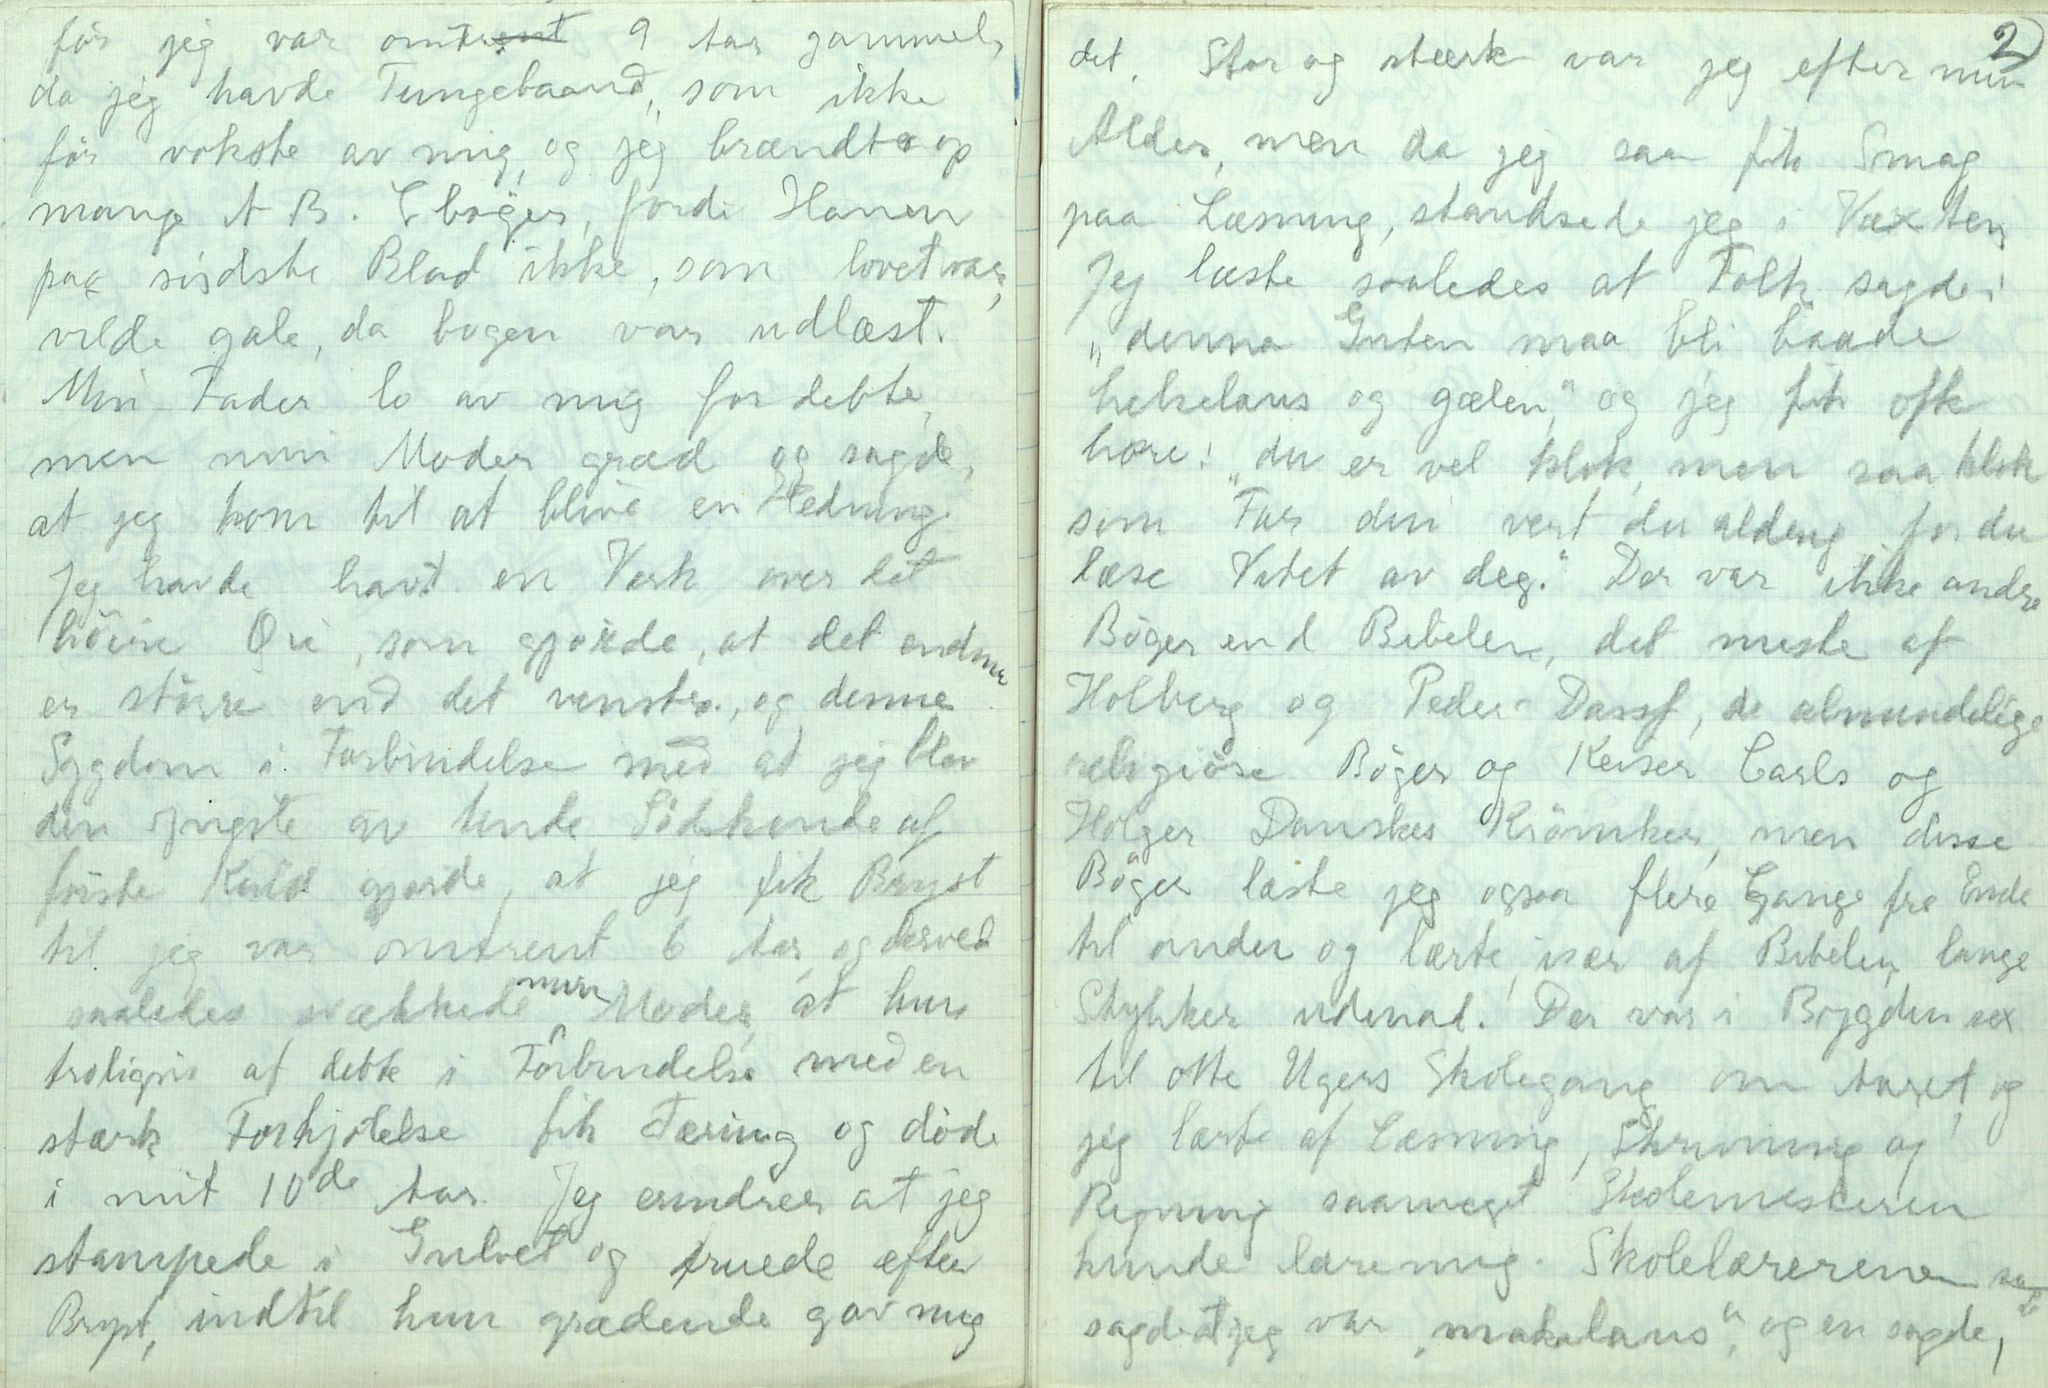 før jeg var omtrent 9 Aar gammel,
da jeg havde Tungebaand, som ikke
før vokste av mig, og jeg brændte op
mange A B. C bøger, fordi Hanen
paa sidste Blad ikke, som lovet var,
vilde gale, da bogen var udlæst.
Min Fader lo av mig for dette,
men min Moder græd og sagde,
at jeg kom til at blive en Hedning.
Jeg havde havt en Værk over det
höire Øie, som gjorde, at det endnu
er större end det venstre, og denne
Sygdom i Forbindelse med at jeg blev
den yngste av hende Södskende af
förste Kuld gjorde, at jeg fik Bryst
til jeg var omtrent 6 Aar, og derved
saaledes svækkede min Moder, at hun
troligvis af dette i Forbindelse med en
stærk Forkjølelse fik Tæring og døde
i mit 10de Aar. Jeg erindrer at jeg
stampede i Gulvet og truede efter
Bryst, indtil hun grædende gav mig
2)
det. Stor og stærk var jeg efter min
Alder, men da jeg saa fik Smag
paa Læsning, standsede jeg i Væxten,
Jeg læste saaledes at Folk sagde:
„denne Guten maa bli baade
helselaus og gælen," og jeg fik ofte
høre: „du er vel klok, men saa klok
som Far din vert du aldeng, for du
læse Vitet av deg." Der var ikke andre
Bøger end Bibelen, det meste af
Holberg og Peder Dass, de almindelige
religiöse Bøger og Keiser Carls og
Holger Danskes Krönniker, men disse
Bøger læste jeg ogsaa flere Gange fra Ende
til anden og lærte, især af Bibelen, lange
Stykker udenad. Der var i Bygden sex
til otte Ugers Skolegang om Aaret, og
jeg lærte af Læsning, Skrivning og
Regning saameget Skolemesteren
kunde lære mig. Skolelærerene
sagde at jeg var „makalaus", og en sagde,